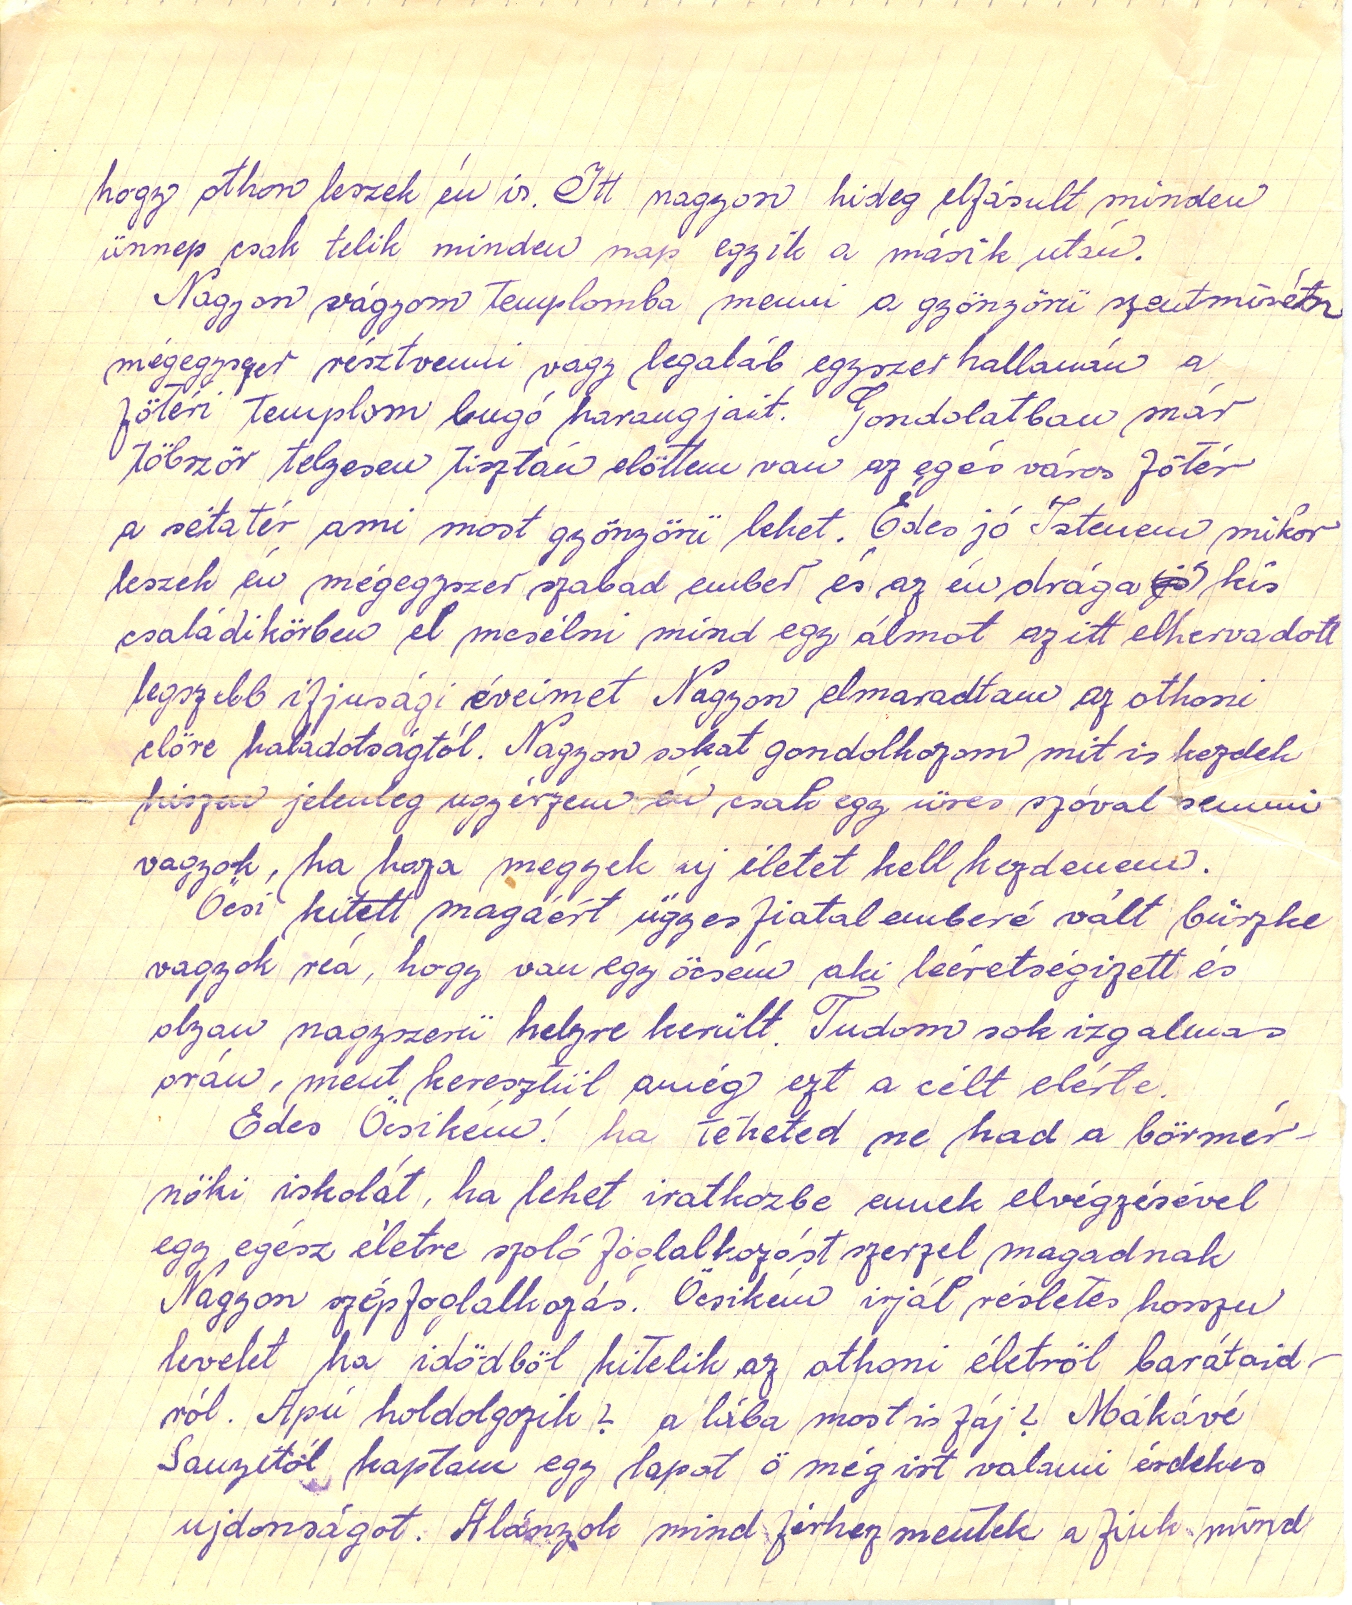 hogy othon leszek én is. Itt nagyon hideg elfásult minden
ünnep csak telik minden nap egyik a másik után.
Nagyon vágyom templomba menni a gyönyörü szentmisén
mégegyszer résztvenni vagy legaláb egyszer hallanán a
főtéri templom bugó harangjait. Gondolatban már
többször telyesen tisztán előttem van az egés város főtér
a sétatér ami most gyönyörü lehet. Édes jó Istenem mikor
leszek én mégegyszer szabad ember és az én drága kis
családikörben el mesélni mind egy álmot az itt elhervadott
legszebb ifjusági éveimet Nagyon elmaradtam az othoni
előre haladotságtól. Nagyon sokat gondolkozom mit is kezdek
hiszen jelenleg ugyérzem én csak egy üres szóval semmi
vagyok, ha haza megyek uj életet kell kezdenem.
Öcsi kitett magáért ügyes fiatal emberé vált büszke
vagyok reá, hogy van egy öcsém aki leéretségizett és
olyan nagyszerü helyre került. Tudom sok izgalmas
órán, ment keresztül amég ezt a célt elérte.
Edes Öcsikém! ha teheted ne had a bőrmér-
nöki iskolát, ha lehet iratkozbe ennek elvégzésével
egy egész életre szoló foglalkozást szerzel magadnak
Nagyon szépfoglalkozás. Öcsikém irjál részletes hosszu
levelet ha idődből kitelik az othoni életről barátaid-
ról. Apú holdolgozik? a lába most is fáj? Mákávé
Sanyitól kaptam egy lapot ő még irt valami érdekes
ujdonságot. A lányok mind férhez mentek a fiuk mind